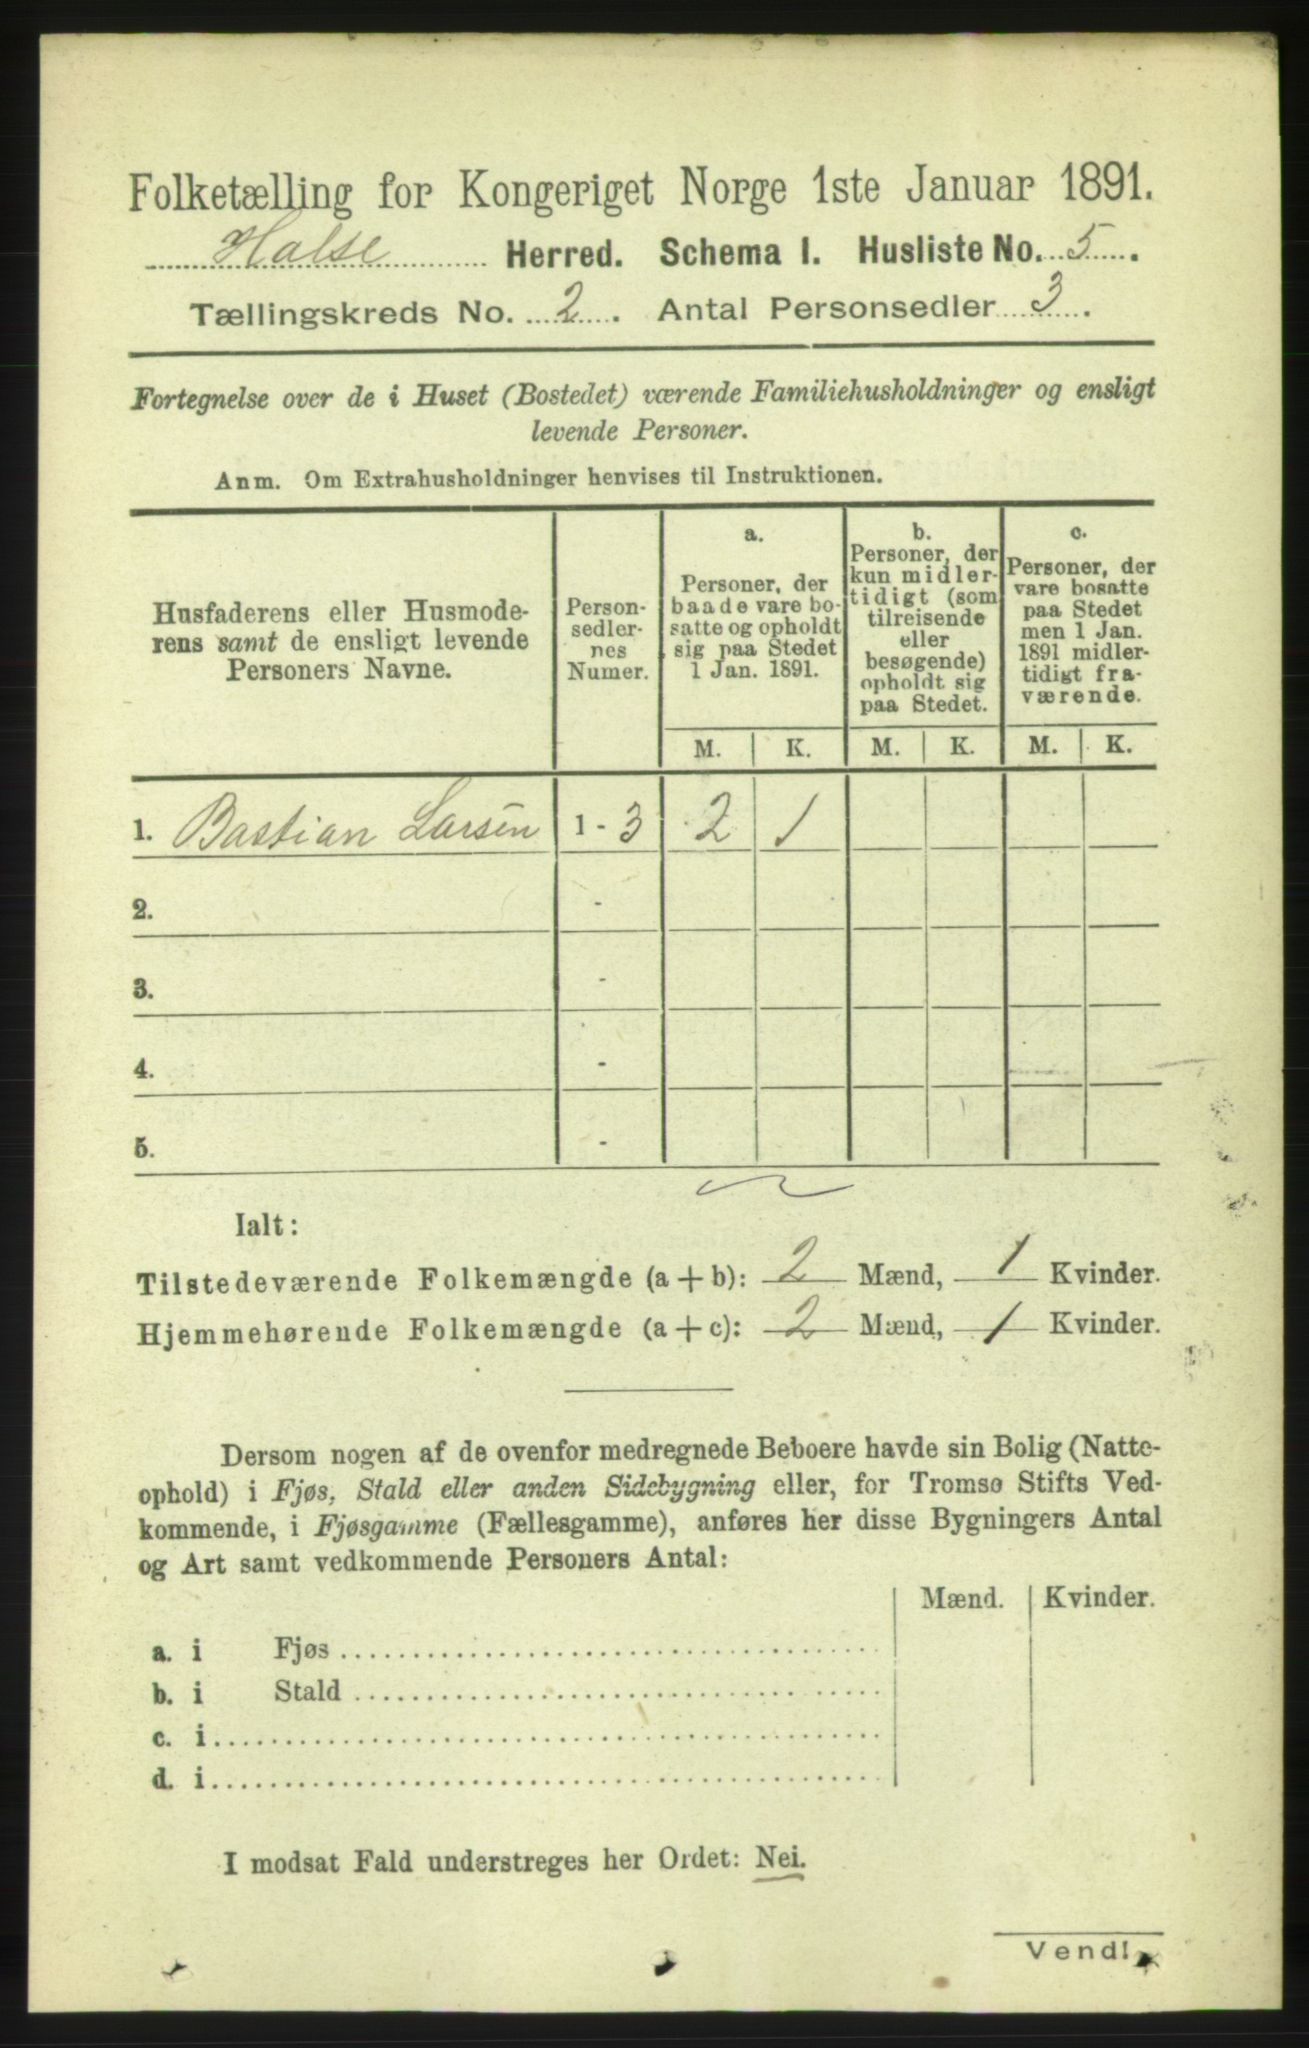 Folketælling for Kongeriget Norge 1ste Januar 1891.
Halse Herred. Schema I. Husliste No. 5.
Tællingskreds No. 2. Antal Personsedler 3.
Fortegnelse over de i Huset (Bostedet) værende Familiehusholdninger og ensligt
levende Personer.
Anm. Om Extrahusholdninger henvises til Instruktionen.
Husfaderens eller Husmode-
rens samt de ensligt levende
Personers Navne.
Person-
sedler-
nes
Numer.
a.
Personer, der
baade vare bo-
satte og opholdt
sig paa Stedet
1 Jan. 1891.
b.
Personer, der
kun midler-
tidigt (som
tilreisende
eller
besøgende)
opholdt sig
paa Stedet.
c.
Personer, der
vare bosatte
paa Stedet
men 1 Jan.
1891 midler-
tidigt fra-
værende.
M. K. M. K. M. K.
1. Bastian Larsen 1 - 3 2 1
2. -
3. -
4. -
5. -
Ialt:
Tilstedeværende Folkemængde (a + b): 2 Mænd, 1 Kvinder.
Hjemmehørende Folkemængde (a + c): 2 Mænd, 1 Kvinder.
Dersom nogen af de ovenfor medregnede Beboere havde sin Bolig (Natte-
ophold) i Fjøs, Stald eller anden Sidebygning eller, for Tromsø Stifts Ved-
kommende, i Fjøsgamme (Fællesgamme), anføres her disse Bygningers Antal
og Art samt vedkommende Personers Antal:
Mænd. Kvinder.
a. i Fjøs
b. i Stald
c. i
d. i
I modsat Fald understreges her Ordet: Nei.
Vend!